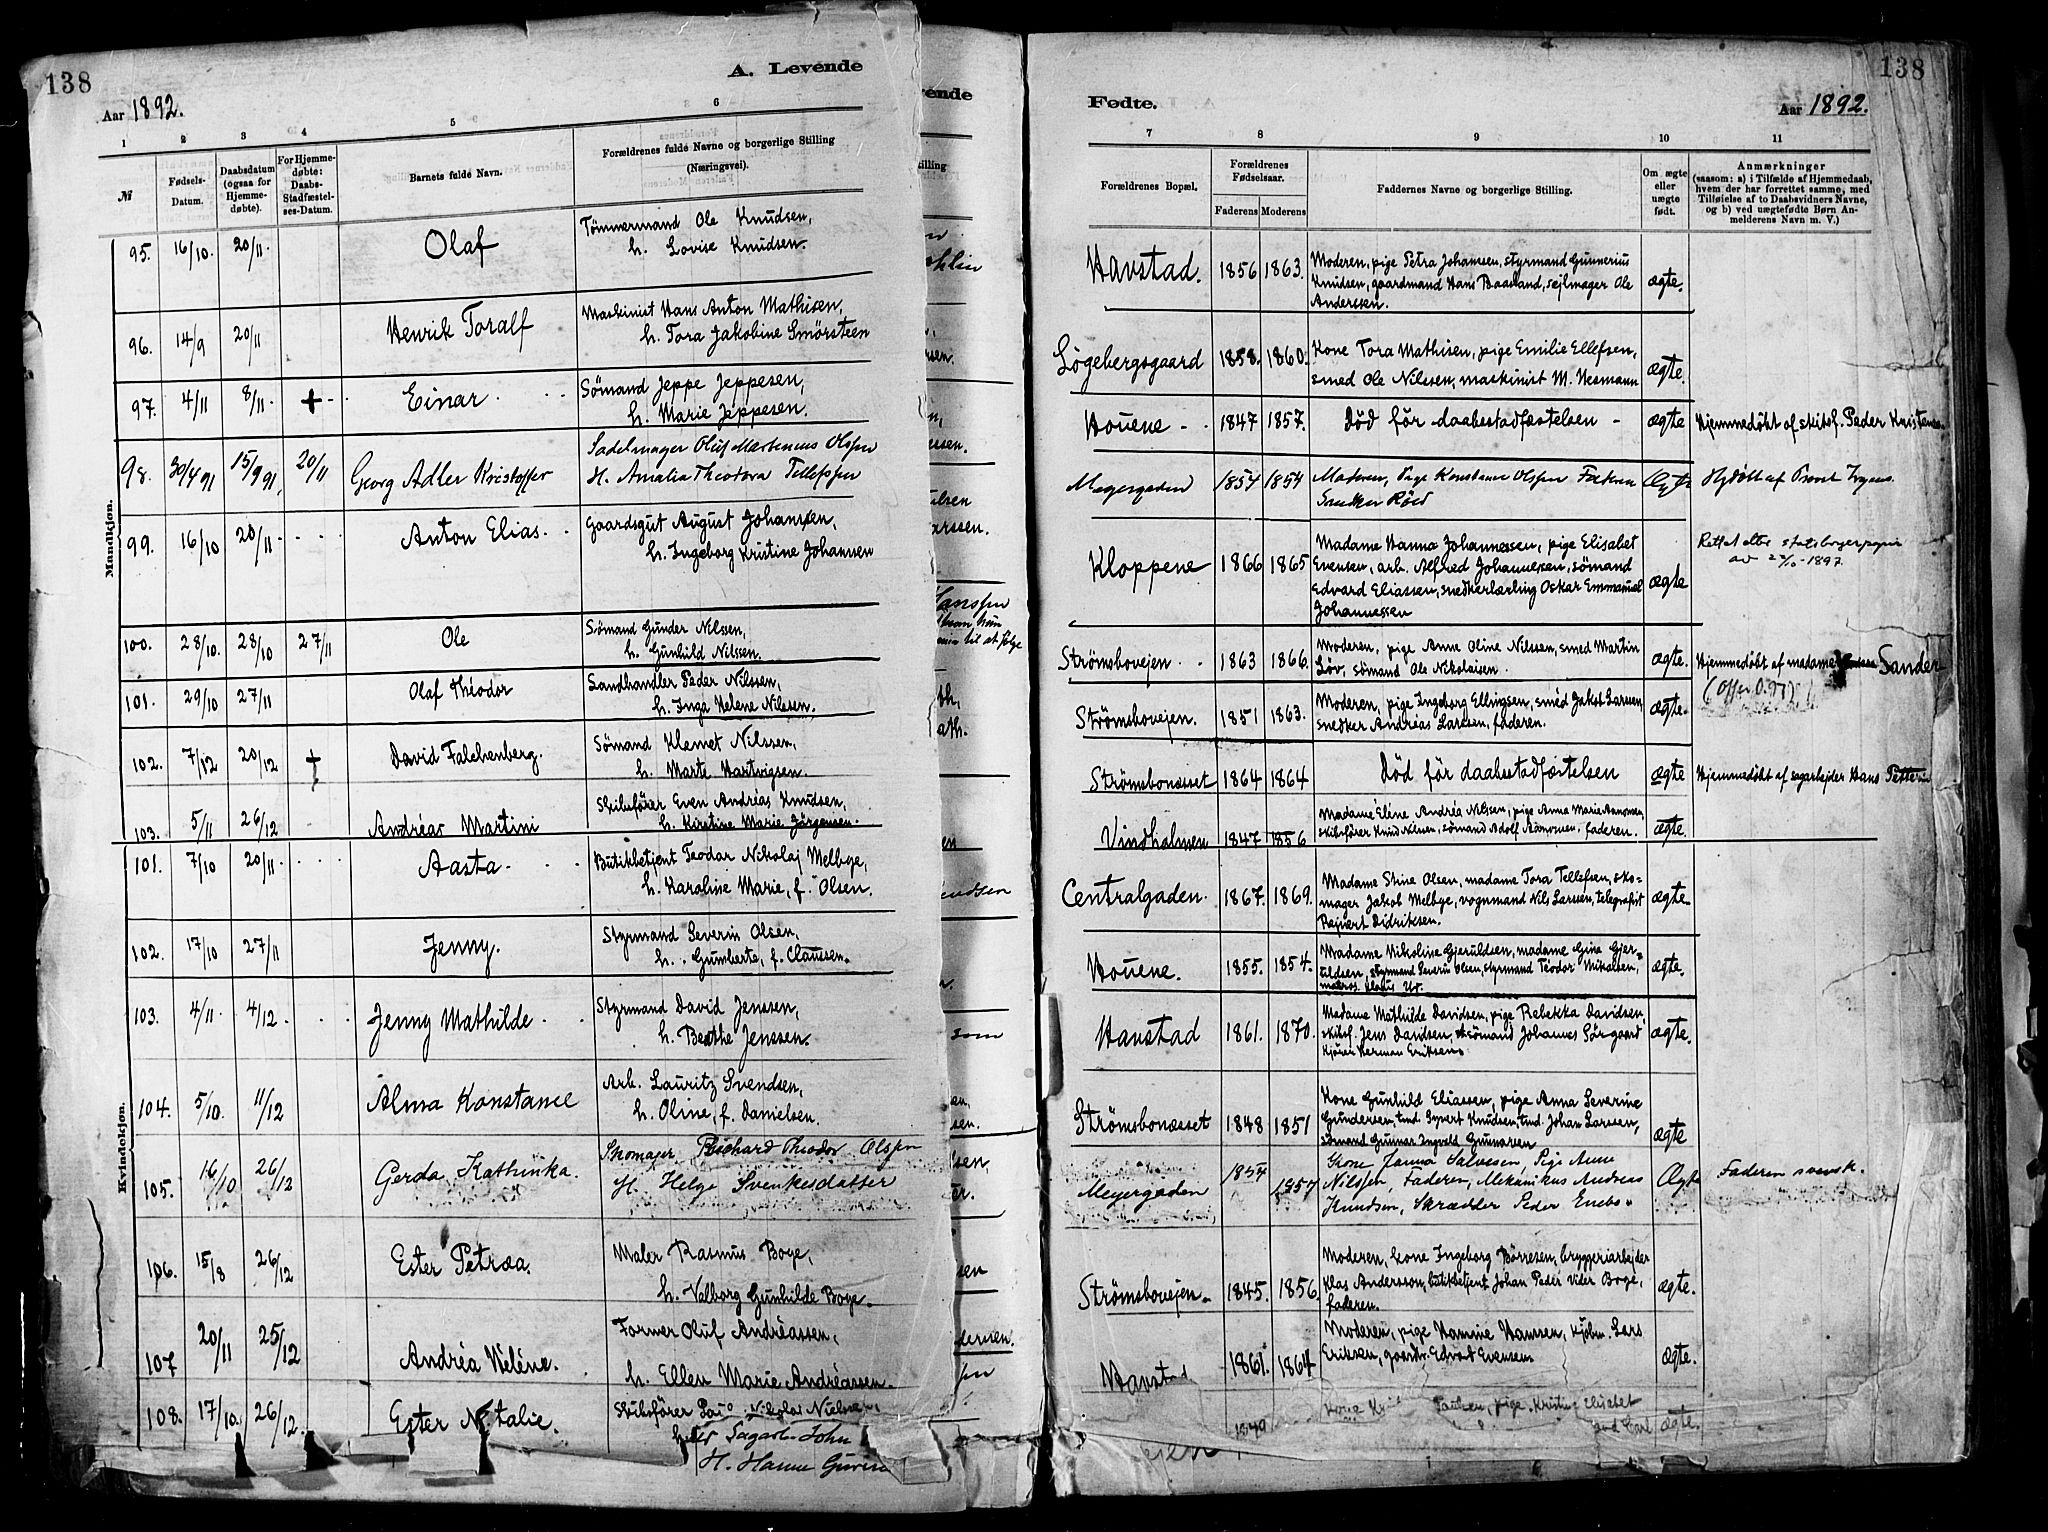 138
A. Levende
Aar 1892.
1 2 3 4 5 6
№
Fødsels-
Datum.
Daabsdatum
(ogsaa for
Hjemme-
døbte).
For Hjemme-
døbte:
Daabs-
Stadfæstel-
ses-Datum.
Barnets fulde Navn.
Forældrenes fulde Navne og borgerlige Stilling
(Næringsvei).
Mandkjøn.
95. 16/10. 20/11. Olaf
Tömmermand Ole Knudsen,
h. Lovise Knudsen.
96. 14/9 20/11 Henrik Toralf
Maskinist Hans Anton Mathisen,
h. Tora Jakobine Smörsteen
97. 4/11 8/11. + Einar
Sömand Jeppe Jeppesen,
h. Marie Jeppesen.
98. 30/4 91 15/9 91, 20/11 Georg Adler Kristoffer
Sadelmager Oluf Martenius Olssen
H. Amalia Theodora Tellefssen
99. 16/10 20/11 Anton Elias.
Gaardsgut August Johansen,
h. Ingeborg Kristine Johansen
100. 28/10. 28/10 27/11 Ole
Sömand Gunder Nilssen,
h. Gunhild Nilssen.
101. 29/10 27/11 Olaf Théodor
Sandhandler Peder Nilssen,
h. Inga Helene Nilssen.
102. 7/12 20/12 + David Falchenberg.
Sömand Klemet Nilssen,
h. Marte Hartvigsen.
103. 5/11 26/12 Andréas Martini
Skibsförer Even Andréas Knudsen,
h. Kirstine Marie Jörgensen.
Kvindekjøn.
101. 7/10 20/11 Aasta
Butikbetjent Teodor Nikolaj Melbye,
h. Karoline Marie, f. Olsen.
102. 17/10 27/11 Jenny.
Styrmand Severin Olsen,
h. Gumberte, f. Claussen.
103. 4/11 4/12 Jenny Mathilde
Styrmand David Jenssen,
h. Berthe Jenssen.
104. 5/10. 11/12 Alma Konstance
Arb. Lauritz Svendsen,
h. Oline, f. Danielsen.
105. 16/10 26/12 Gerda Kathinka.
Skomager Richard Theodor Olssen
H. Helge Svenkesdatter
106. 15/8 26/12 Ester Petræa.
Maler Rasmus Boge,
h. Valborg Gunhilde Boge.
107 20/11 25/12 Andréa Héléne.
Former Oluf Andréassen,
h. Ellen Marie Andréassen.
108. 17/10. 26/12. Ester N talie.
Skibsförer
Nikolai Nielsen,
John
H. Hanne
138
Fødte.
Aar 1892.
7 8 9 10 11
Forældrenes Bopæl.
Forældrenes
Fødselsaar.
Faderens Moderens
Faddernes Navne og borgerlige Stilling.
Om ægte
eller
uægte
født.
Anmærkninger
(saasom: a) i Tilfælde af Hjemmedaab,
hvem der har forrettet samme, med
Tilføielse af to Daabsvidners Navne,
og b) ved uægtefødte Børn An-
melderens Navn m. V.)
Havstad. 1856 1863.
Moderen, pige Petra Johansen, styrmand Gunnerius
Knudsen, gaardmand Hans Baastand, sejlmager Ole
Anderssen.
ægte.
Lögebergsgaard 1858. 1860.
Kone Tora Mathisen, pige Emilie Ellefsen,
smed Ole Nilssen, maskinist M. Nesmann
ægte.
Houene 1847 1857. Död för daabsstadfæstelsen ægte Hjemmedöbt af skibsf. Peder Kristensen
Meyergaden 1854 1854
Moderen, Pige Konstance Olssen Faderen
Snedker Röed
Ægte Hjdöbt af Provst
Kloppene 1866 1865
Madame Hanna Johannessen, pige Elisabet
Evensen, arb. Alfred Johannessen, sömand
Edvard Eliassen, snedkerlærling Oskar Emmanuel
Johannessen
ægte
Rettet efter statsborgerpapir
av 22/10-1897.
Strömsbovejen 1863 1866.
Moderen, pige Anne Oline Nilssen, smed Martin
Löv, sömand Ole Nikolaisen.
ægte. Hjemmedöbt af madame Sander
Strömsbovejen. 1851 1863.
Moderen, pige Ingeborg Ellingsen, smed Jakob Larssen,
snedker Andréas Larssen, faderen.
ægte.
Strömsbonæsset 1864 1864 Död för daabsstadfæstelsen ægte Hjemmedöbt af sagarbejder Hans Petterse
Vindholmen 1847 1856
Madame Eléne Andréa Nilsen, pige Anna Marie Aanonsen,
skibsförer Knud Nilsen, sömand Adolf Aanonsen, faderen.
ægte.
Centralgaden. 1867. 1869.
Madame Stine Olsen, madame Tora Tellefsen, sko-
mager Jakob Melbye, vognmand Nils Larssen, telegrafist
Rejnert Didriksen.
ægte.
Houene. 1855. 1854.
Madame Nikoline Gjeruldsen, madame Gina Gjer-
uldsen, styrmand Severin Olsen, styrmand Teodor Mikalsen,
matros Klaus Ur.
ægte.
Havstad 1861. 1870.
Madame Mathilde Davidsen, pige Rebekka Davidsen,
skibsf. Jens Davidsen, sömand Johannes Sörgaard
kjörer Herman Eriksen.
ægte.
Strömsbonæsset 1848 1851
Kone Gunhild Eliassen, pige Anna Severine
Gundersen, tmd. Sypert Knudsen, tmd. Johan Larssen,
sömand Gunnar Ingvald Gunnarsen
ægte
Meyergaden 1854 1857
Kone Janna Salvesen, Pige Anne
Nilssen, Faderen, Mekanikus Andreas
Knudsen, Skrædder Peder Enebo.
Ægte Faderen svensk.
Strömsbovejen. 1845. 1856.
Moderen, kone Ingeborg Börresen, bryggeriarbejder
Klas Andersson, butikbetjent Johan Peder Vider Boge,
faderen.
ægte.
Havstad 1861. 1864
Moderen, pige Hamine Hansen, kjöbm. Lars
Eriksen, gaardbr. Edvard Evensen
ægte.
1849
Kone
pige Kristine Elisabet
ægte.